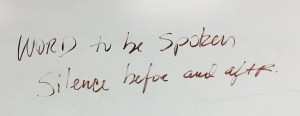 WORD to be spoken
Silence before and after.